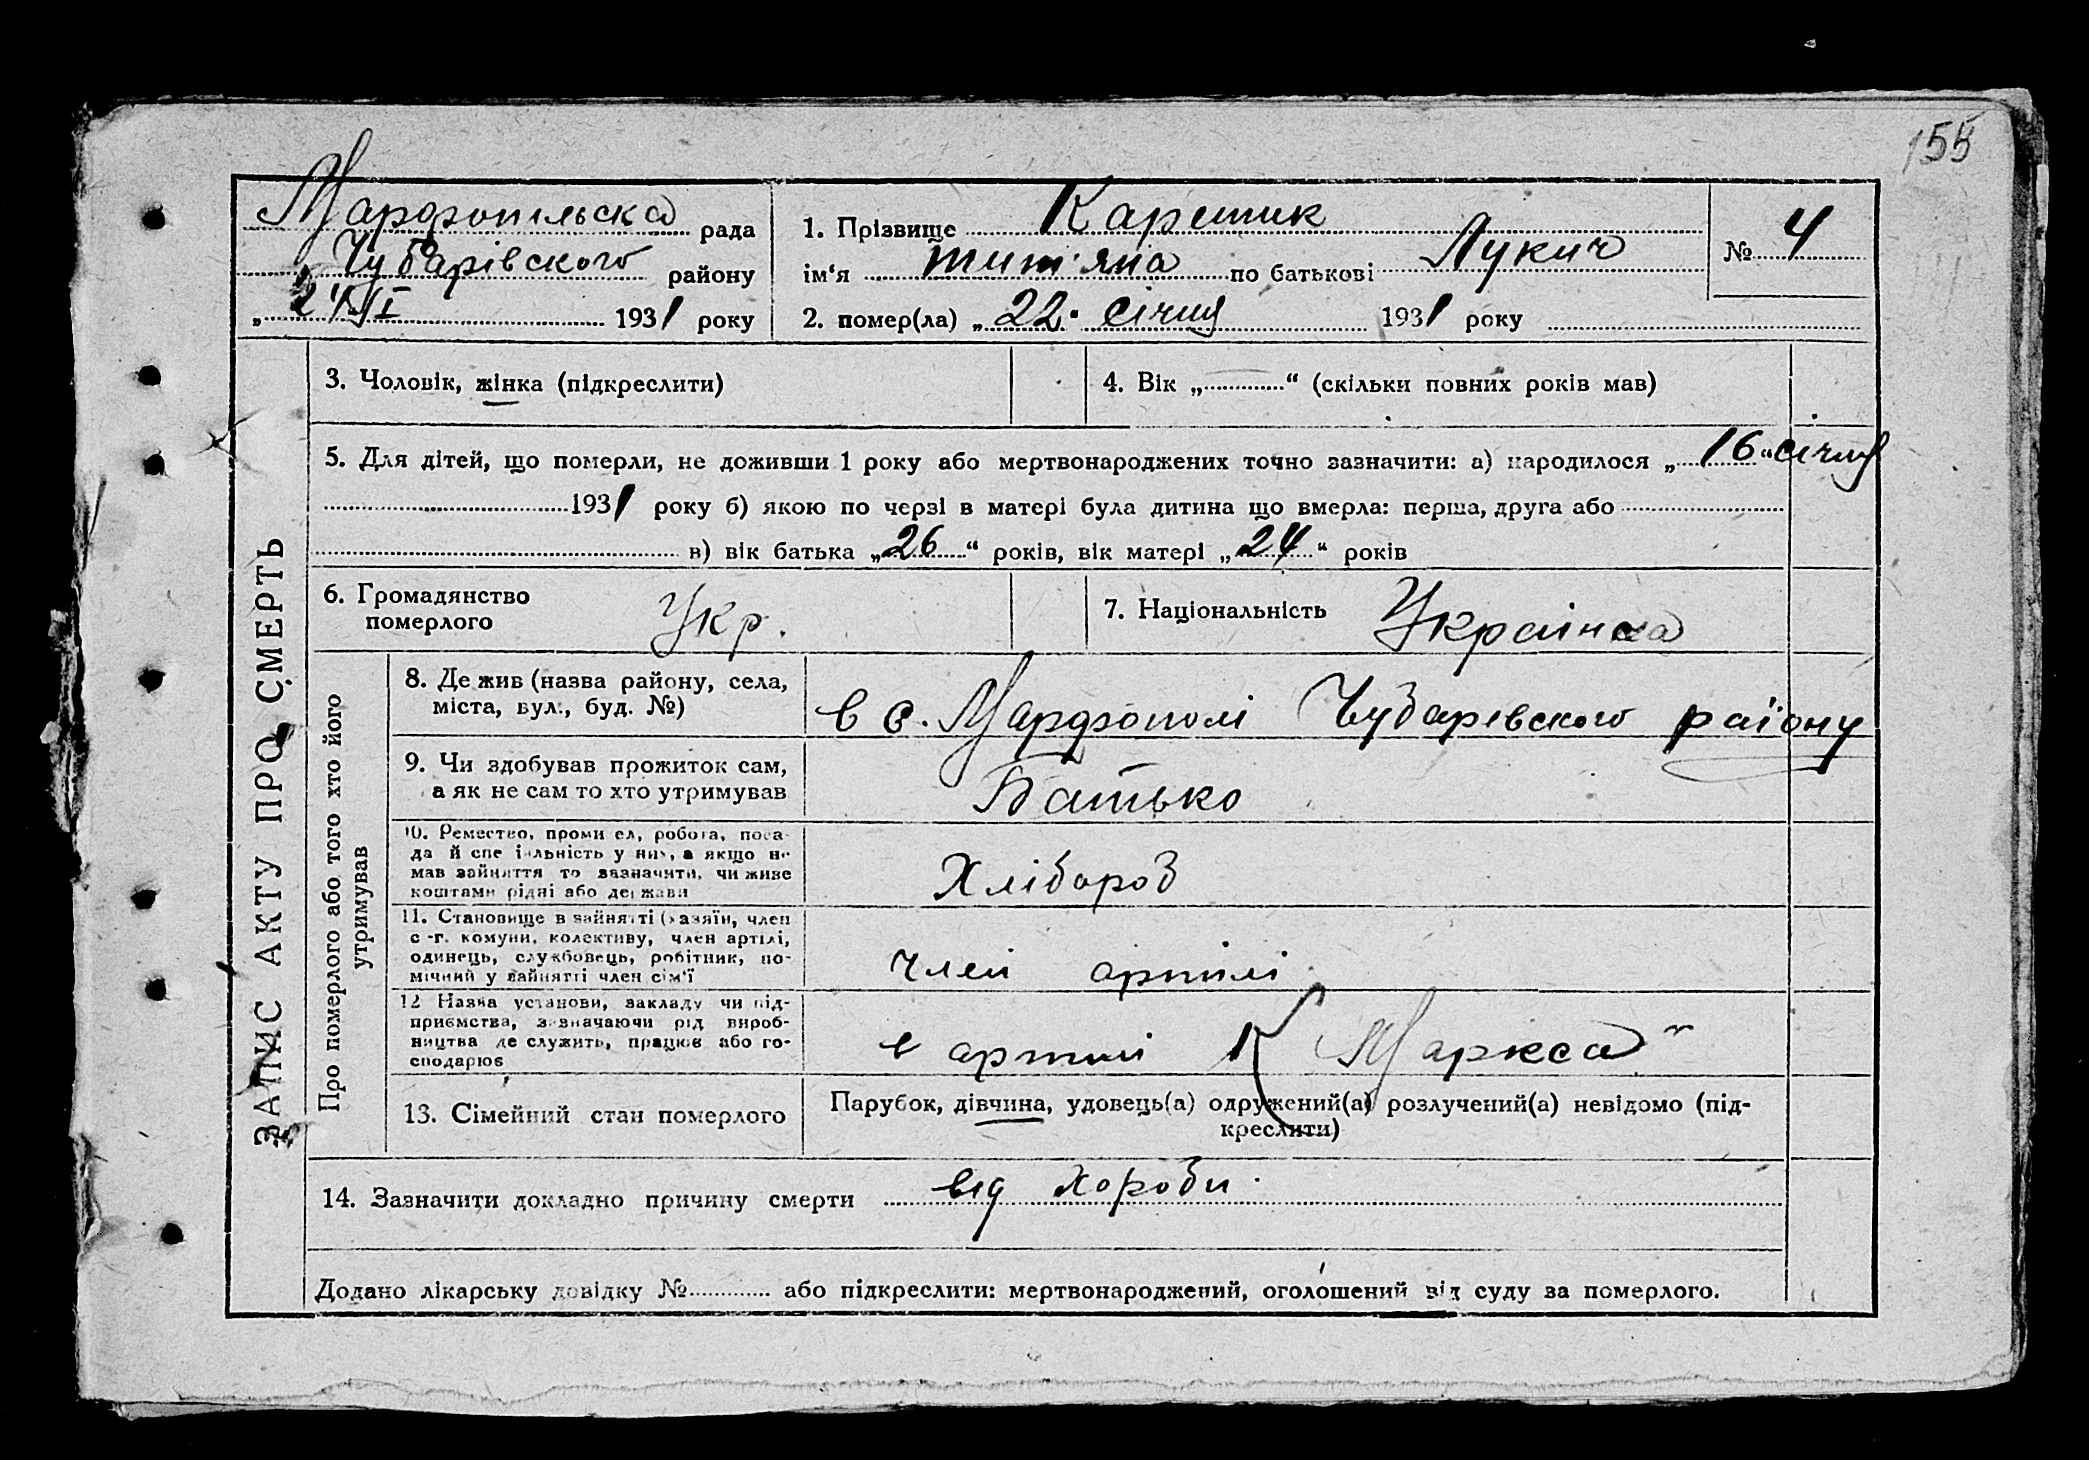 155
Марфопільска рада
Чубарівського району
„ 24/I 1931 року
1. Прізвище Каретик
ім‘я Тит‘яна по батькові Лукич
2. помер(ла) „ 22 “ січня 1931 року
№ 4
ЗАПИС АКТУ ПРО СМЕРТЬ
3. Чоловік, жінка (підкреслити)
4. Вік „ “ (скільки повних років мав)
5. Для дітей, що померли, не доживши 1 року або мертвонароджених точно зазначити: а) народилося „ 16 “ січня
1931 року б) якою по черзі в матері була дитина що вмерла: перша, друга або
в) вік батька „ 26 “ років, вік матері „ 24 “ років
6. Громадянство
померлого Укр.
7. Національність Українка
Про померлого або того хто його
утримував
8. Де жив (назва району, села,
міста, вул., буд. №)
в с. Марфополі Чубарівского району
9. Чи здобував прожиток сам,
а як не сам то хто утримував
Батько
10. Ремество, промисел, робота, поса-
да й спеціальність у них, а якщо не
мав зайняття то зазначити, чи живе
коштами рідні або держави
Хлібороб
11. Становище в зайнятті (хазяїн, член
с.-г. комуни, колективу, член артілі,
одинець, службовець, робітник, по-
мічний у зайнятті член сім‘ї
Член артилі
12 Назва установи, закладу чи під-
приємства, зазначаючи рід вироб-
ництва де служить, працює або го-
сподарює
в артилі К Маркса"
13. Сімейний стан померлого
Парубок, дівчина, удовець(а) одружений(а) розлучений(а) невідомо (під-
креслити)
14. Зазначити докладно причину смерти від хороби
Додано лікарську довідку № або підкреслити: мертвонароджений, оголошений від суду за померлого.